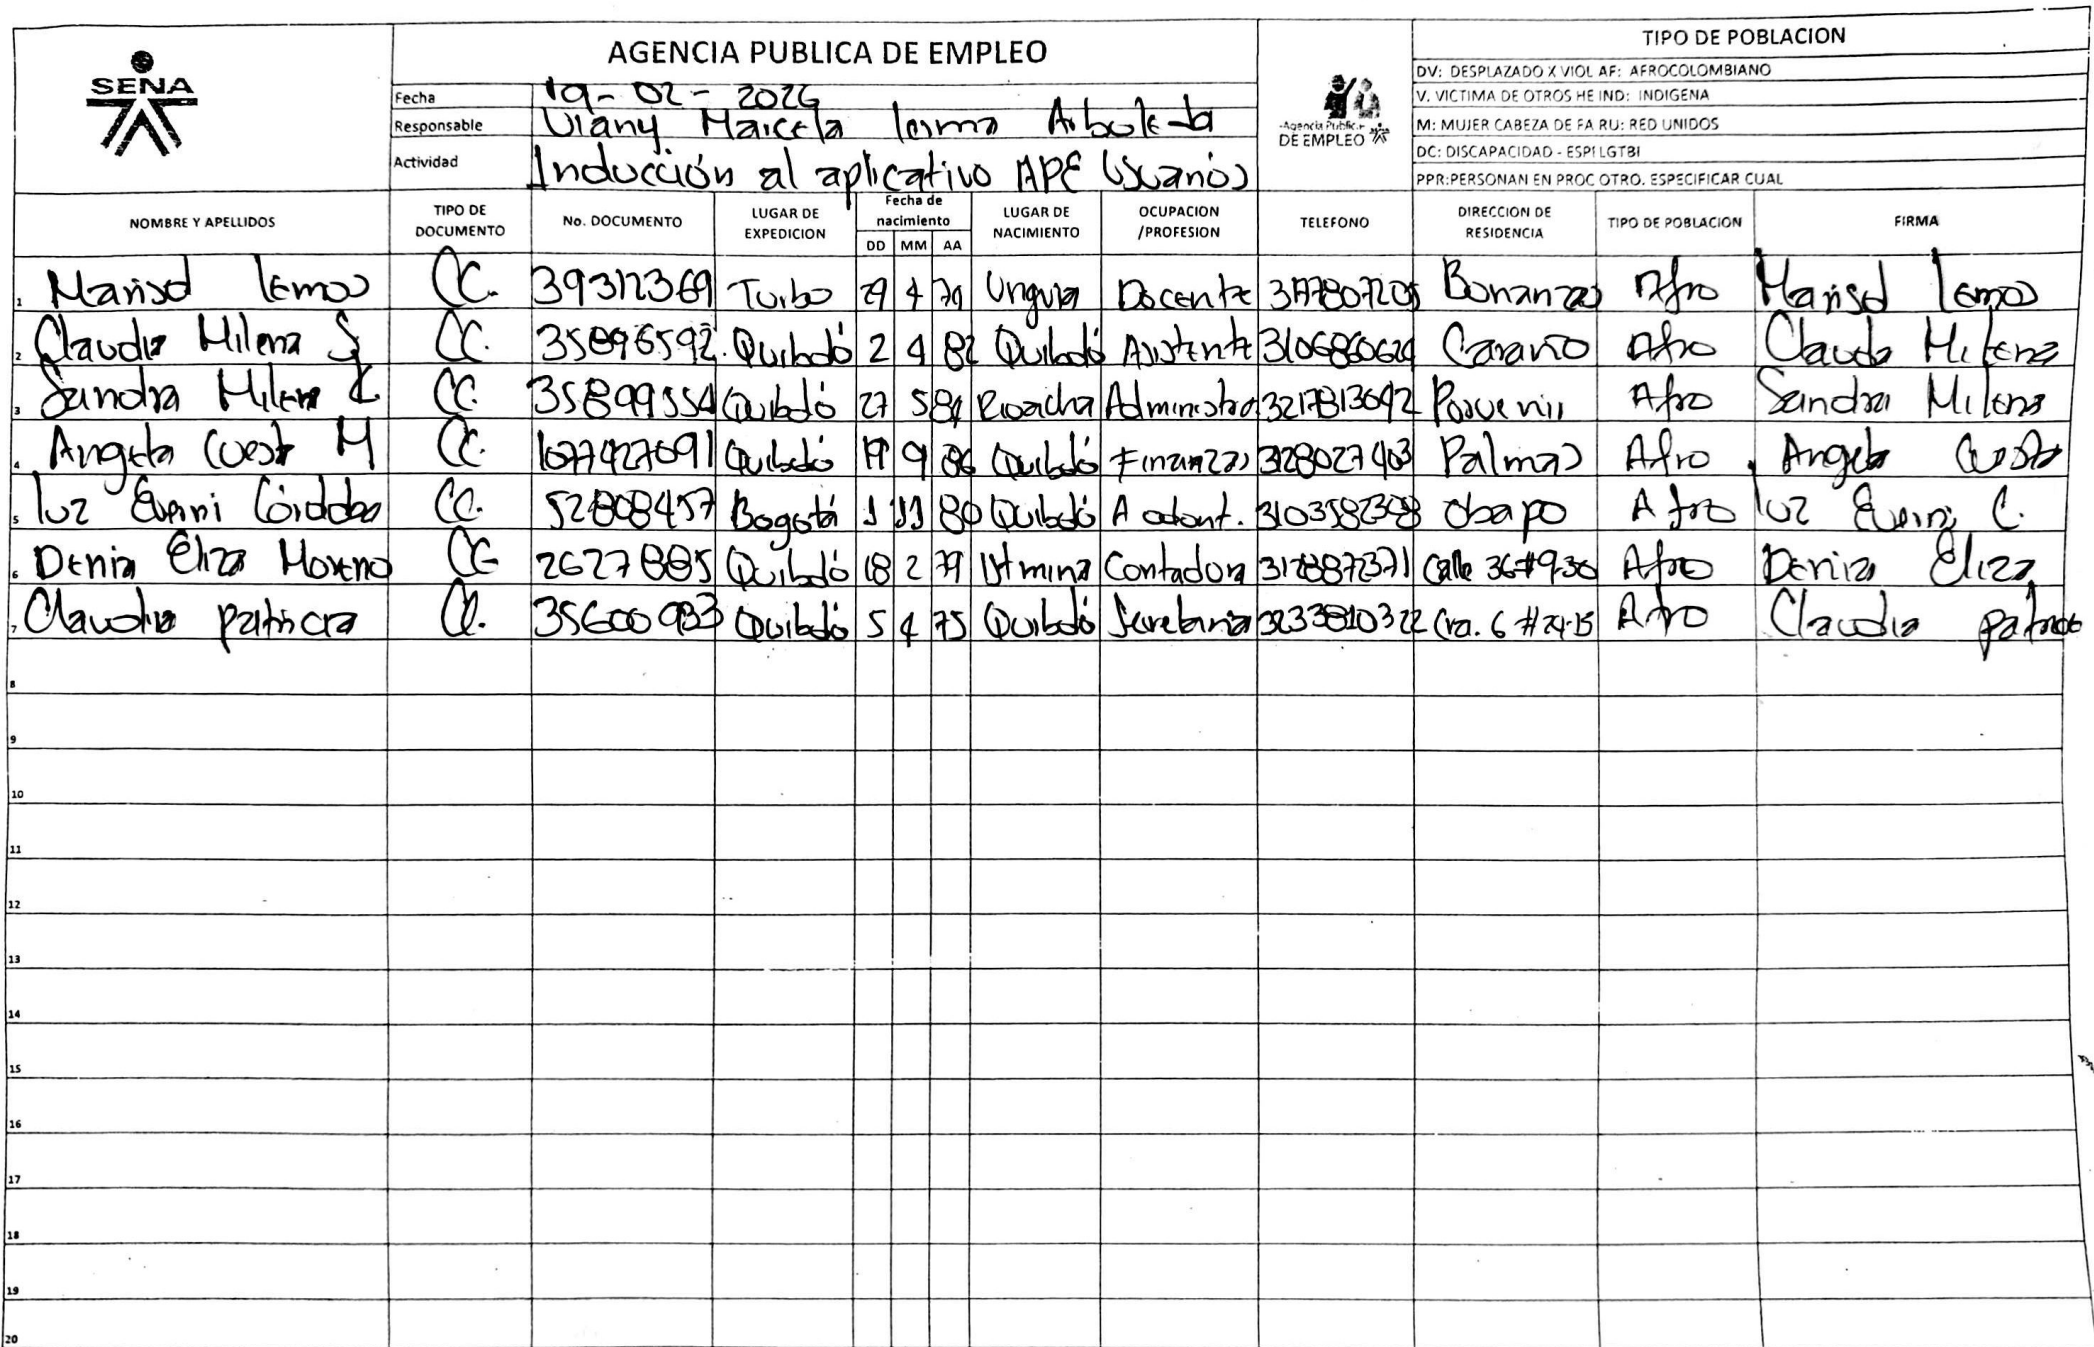 SENA
AGENCIA PUBLICA DE EMPLEO
Fecha 19-02-2026
Responsable Viany Marcela lerma Arboleda
Actividad Inducción al aplicativo APE Usuarios
Agencia Pública
DE EMPLEO
TIPO DE POBLACION
DV: DESPLAZADO X VIOL AF: AFROCOLOMBIANO
V. VICTIMA DE OTROS HE IND: INDIGENA
M: MUJER CABEZA DE FA RU: RED UNIDOS
DC: DISCAPACIDAD - ESPI LGTBI
PPR:PERSONAN EN PROC OTRO. ESPECIFICAR CUAL
NOMBRE Y APELLIDOS TIPO DE DOCUMENTO No. DOCUMENTO LUGAR DE EXPEDICION Fecha de nacimiento DD MM AA LUGAR DE NACIMIENTO OCUPACION /PROFESION TELEFONO DIRECCION DE RESIDENCIA TIPO DE POBLACIÓN FIRMA
1 Marisol lemos CC. 39312369 Turbo 4 79 Unguia Docente Bonanzas Afro Marisol lemos
2 Claudia Milena S CC. 35896592 Quibdó 2 4 82 Quibdó Asistente Caraño Afro Claudia Milena
3 Sandra Milena CC. 35899554 Quibdó 27 5 84 Rioacha Administra 3217813642 Porvenir Afro Sandra Milena
4 Angela Cuest M CC. 1077427691 Quibdó 19 9 86 Quibdó Finanzas 3128027403 Palmas Afro Angela Cuesta
5 luz Córdoba CC. 52808457 Bogotá 1 11 80 Quibdó A odont. 3103582398 obapo Afro luz C.
6 Denia Eliza Moreno CC 26277885 Quibdó 18 2 79 Istmina Contadora 3128872371 Calle 36#9-30 Afro Denia Eliza
7 Claudia patricia CC. 35600983 Quibdó 5 4 75 Quibdó Secretaria 3233810322 Cra. 6 #24-15 Afro Claudia patricia
8
9
10
11
12
13
14
15
16
17
18
19
20